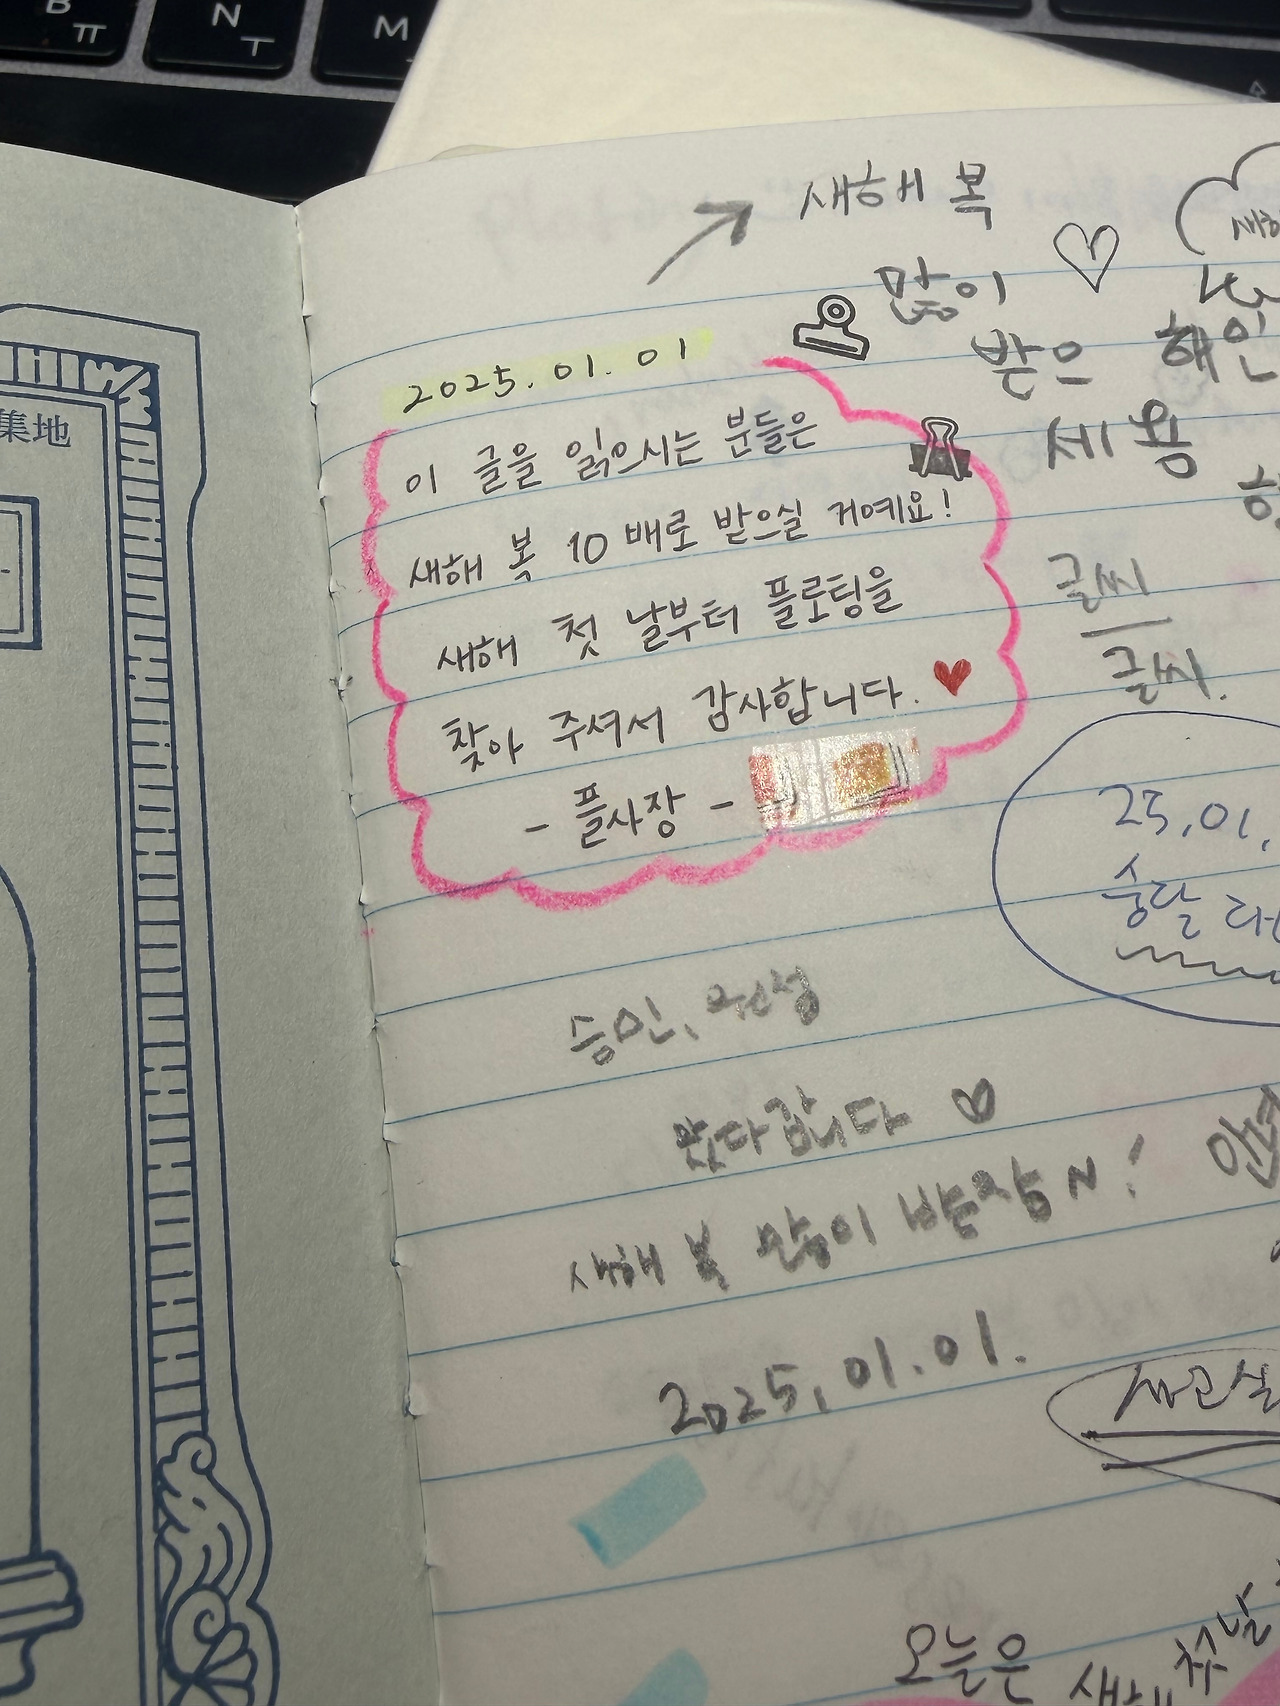 B ㅠ
N ㅜ
M
集地
새해 복
많이
받으
세용
해인
2025.01.01
이 글을 읽으시는 분들은
새해 복 10배로 받으실 거예요!
새해 첫 날부터 플로팅을
찾아 주셔서 감사합니다.
- 플사장 -
글씨
글씨.
25.01.
승민, 원성
왔다갑니다
새해 복 많이 받는장 ~!
2025.01.01.
오늘은